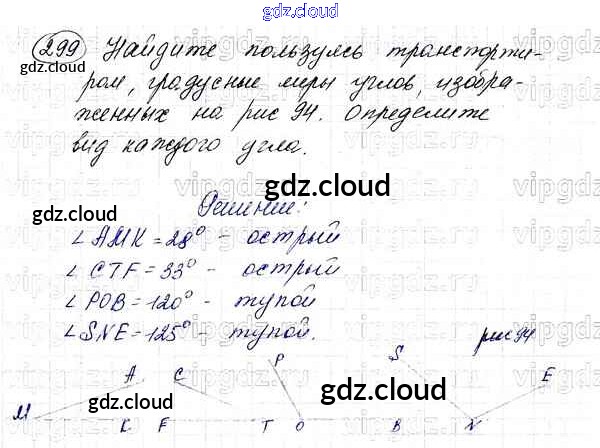 gdz.cloud
299 Найдите пользуясь транспортиром, градусные меры углов, изобра-
женных на рис 94. Определите
вид каждого угла.
gdz.cloud
Решение:
∠AMK = 28° - острый
∠CTF = 33° - острый
∠POB = 120° - тупой
∠SNE = 125° - тупой.
рис 94
P S
A C E
M K F T O B N
gdz.cloud